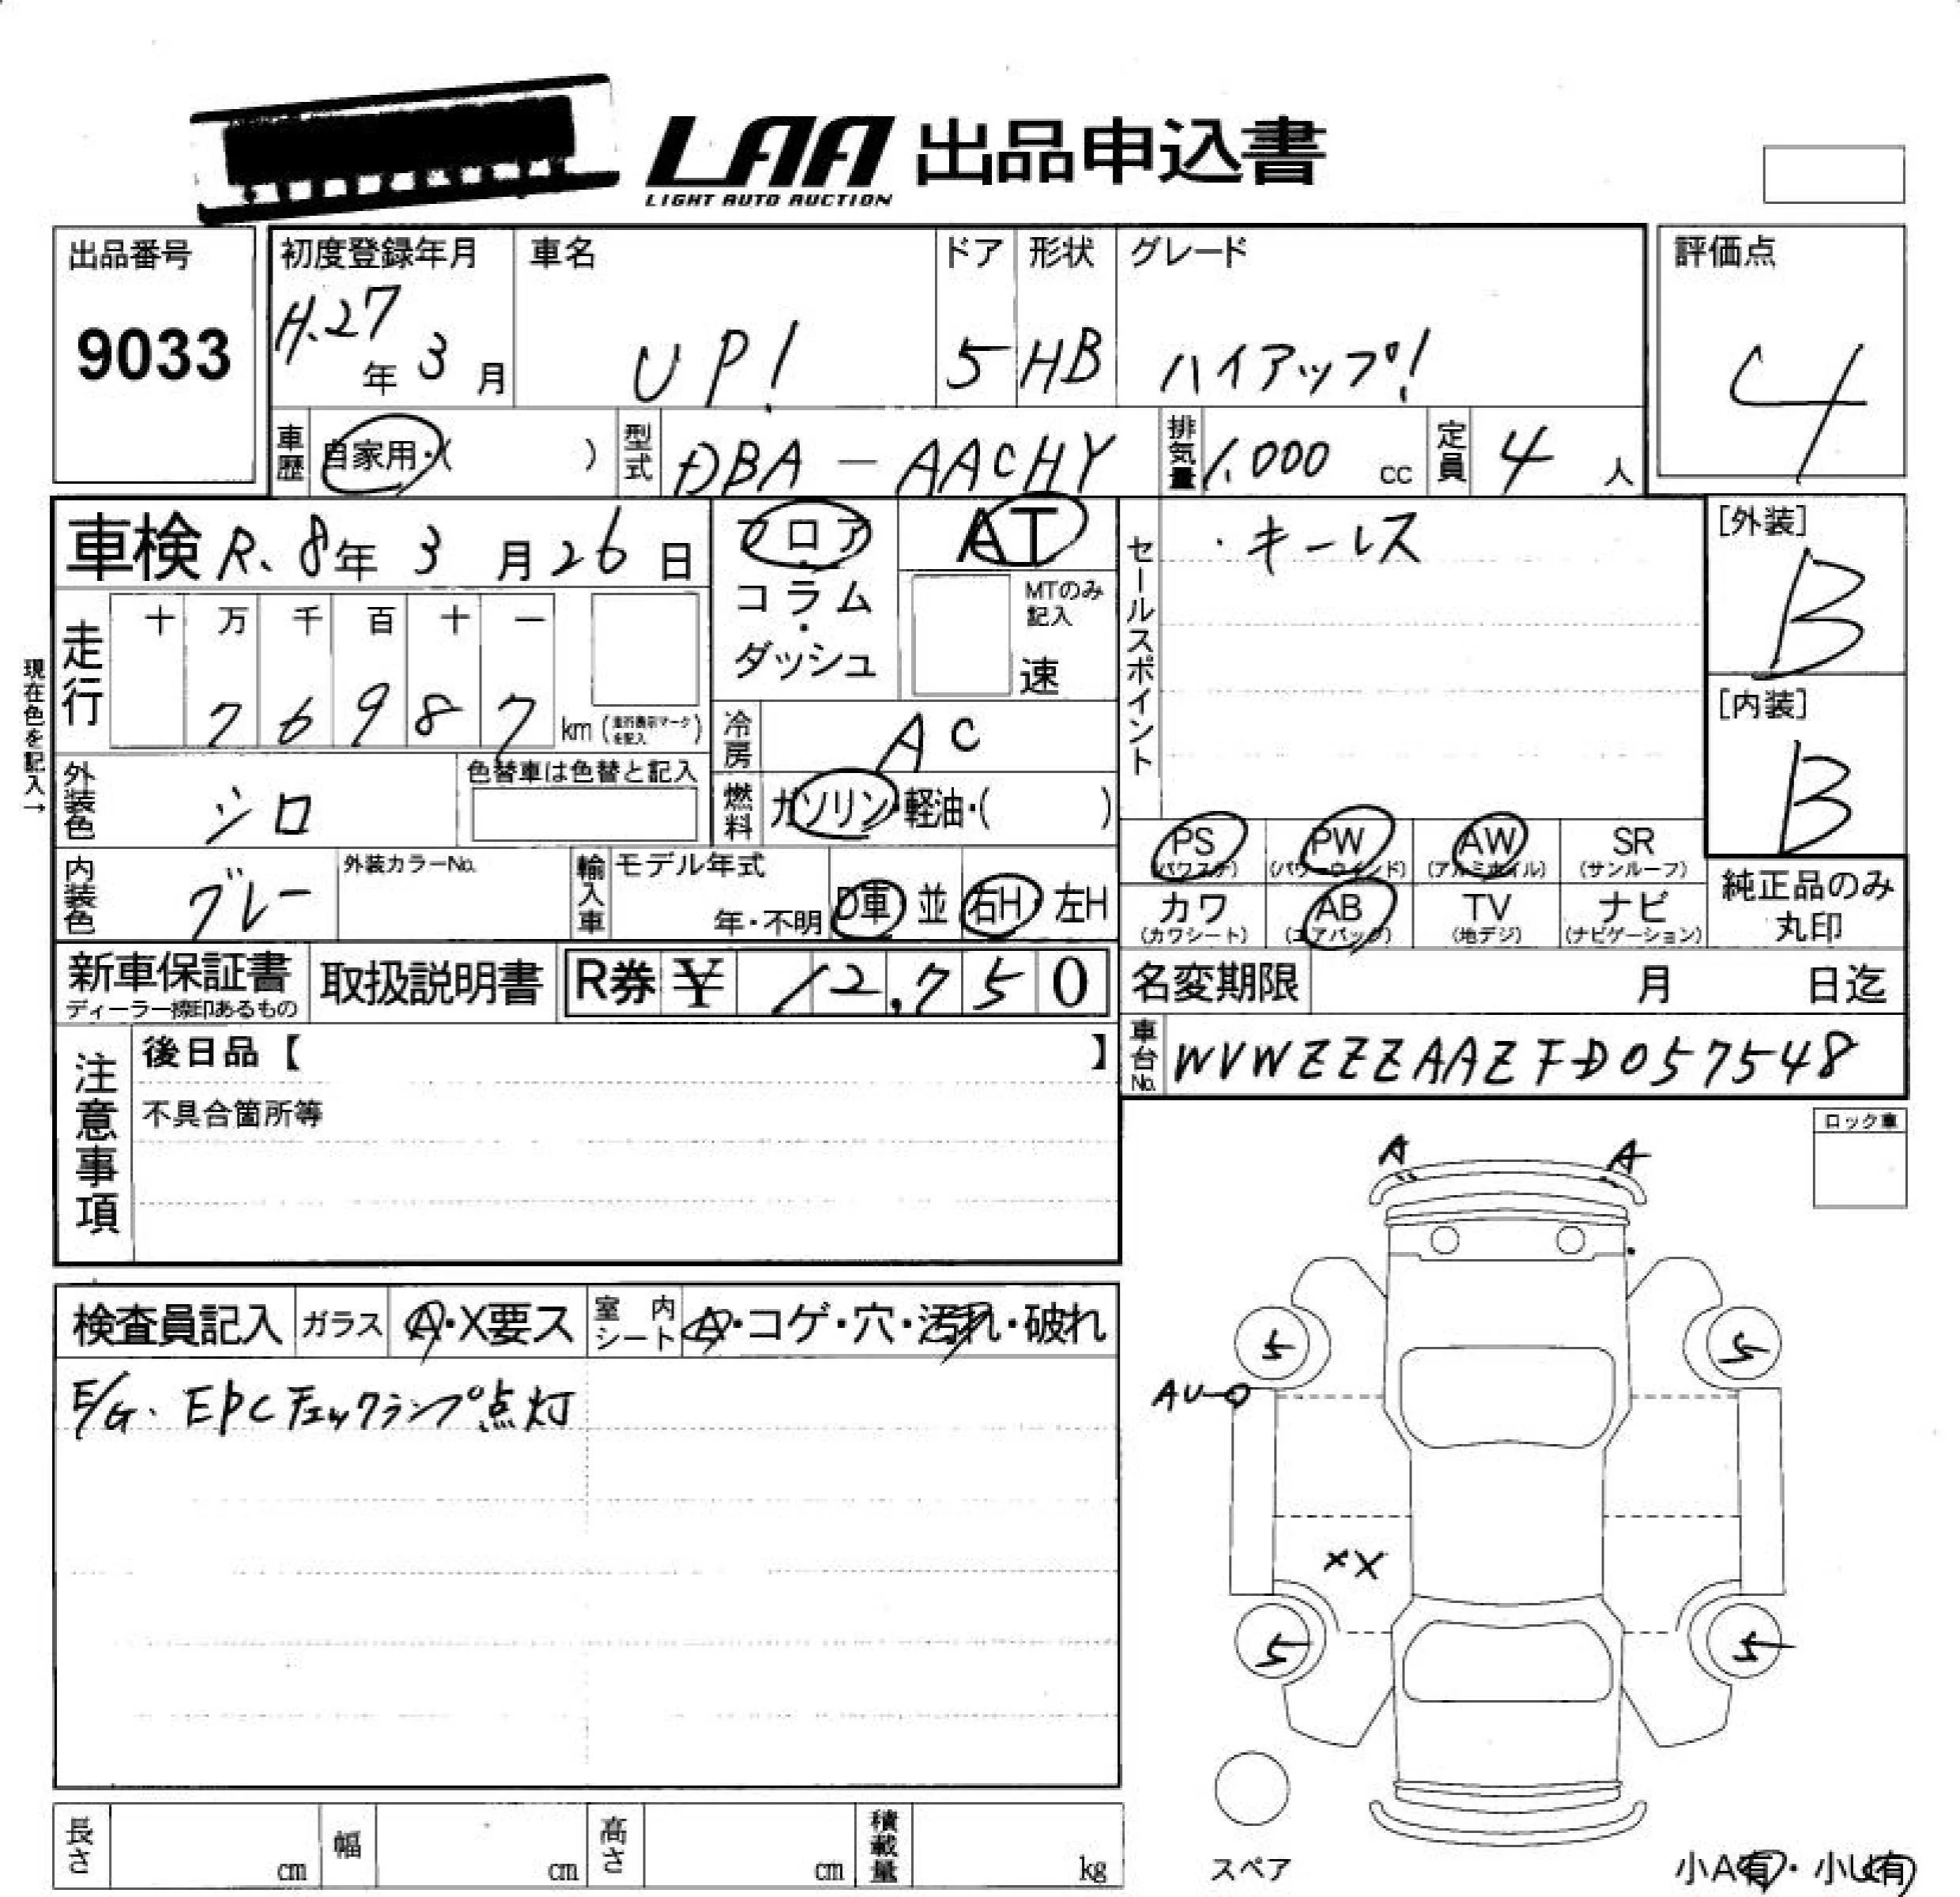 LAA 出品申込書
LIGHT AUTO AUCTION
出品番号
9033
初度登録年月
H.27年 3月
車名
UP!
ドア
5
形状
HB
グレード
ハイアップ!
評価点
4
車歴 自家用・( )
型式 DBA - AACHY
排気量 1,000 cc
定員 4 人
車検 R.8年 3月 26日
フロア・コラム・ダッシュ
AT
MTのみ記入
速
セールスポイント
・キーレス
[外装]
B
[内装]
B
現在色を記入→
走行
十 万 千 百 十 一
7 6 9 8 7 km (走行表示マークを記入)
冷房 AC
外装色 シロ
色替車は色替と記入
燃料 ガソリン・軽油・( )
内装色 グレー
外装カラーNo.
輸入車 モデル年式
年・不明
D車 並 右H・左H
PS (パワステ)
PW (パワーウインド)
AW (アルミホイル)
SR (サンルーフ)
カワ (カワシート)
AB (エアバック)
TV (地デジ)
ナビ (ナビゲーション)
純正品のみ丸印
新車保証書
ディーラー捺印あるもの
取扱説明書
R券 ¥ 12,750
名変期限 月 日迄
車台No. WVWZZZAAZFD057548
注意事項
後日品【 】
不具合箇所等
ロック車
A A
検査員記入
ガラス A・X要ス
室内シート A・コゲ・穴・汚れ・破れ
E/G. EPCチェックランプ点灯
5 5
AU
XX
5 5
スペア
長さ cm
幅 cm
高さ cm
積載量 kg
小A有・小U有